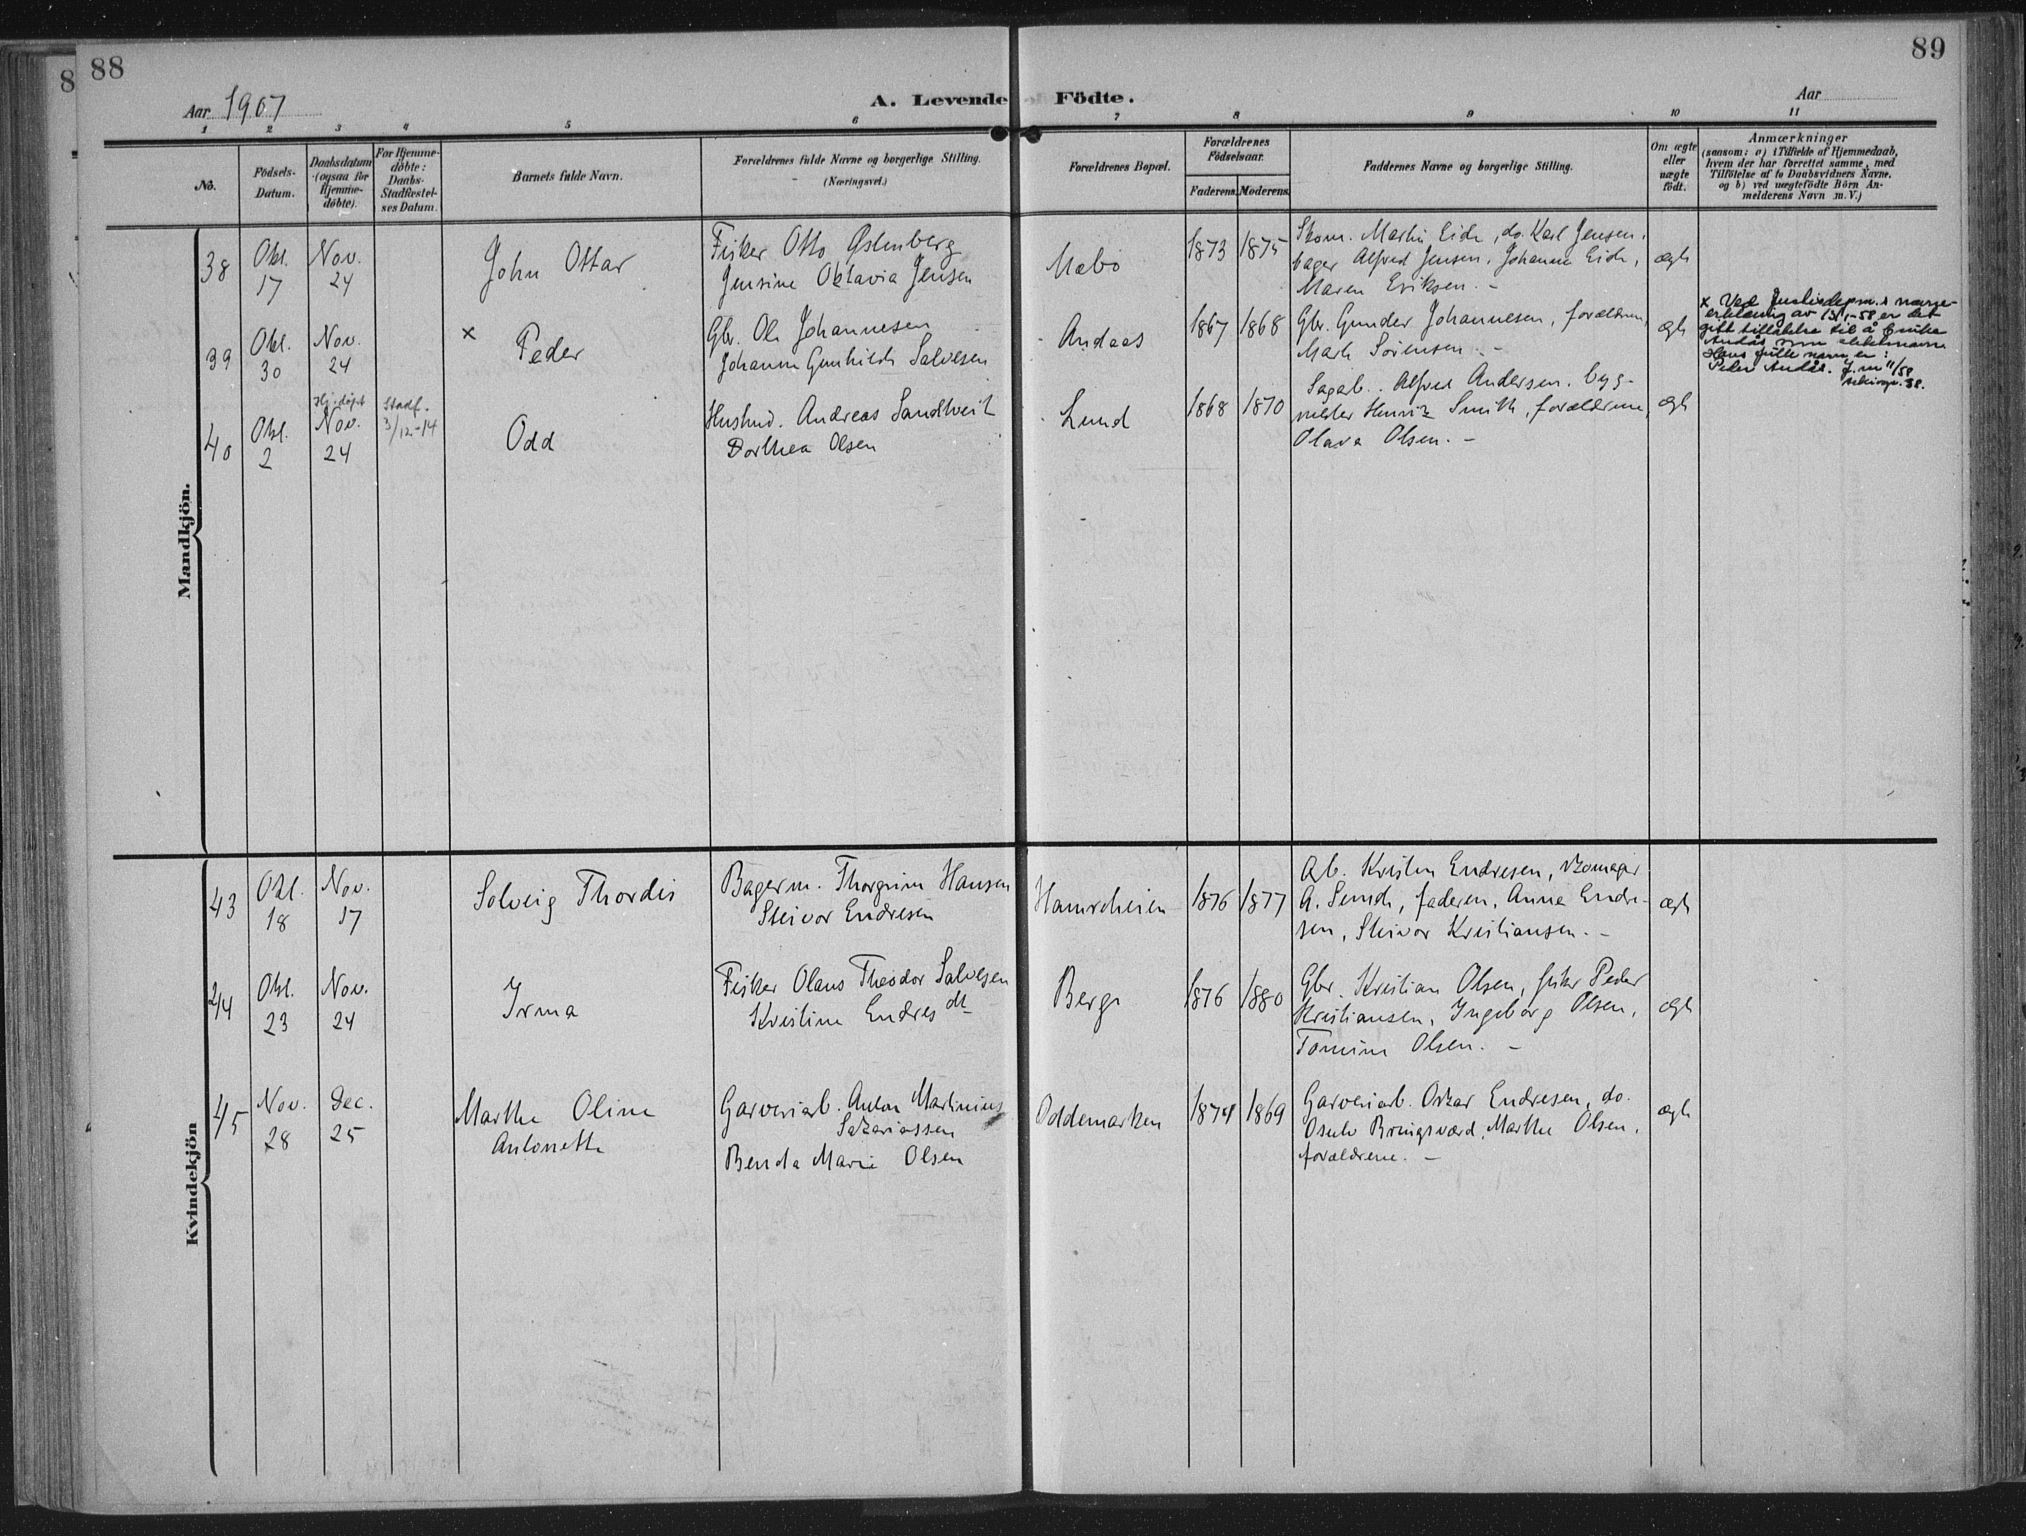 88
89
Aar 1907
A. Levende Födte.
Aar
1 2 3 4 5 6 7 8 9 10 11
No.
Födsels-
Datum.
Daabsdatum
(ogsaa for
Hjemme-
døbte).
For Hjemme-
døbte:
Daabs-
Stadfæstel-
ses Datum.
Barnets fulde Navn.
Forældrenes fulde Navne og borgerlige Stilling.
(Næringsvei.)
Forældrenes Bopæl.
Forældrenes
Födselsaar.
Faderens. Moderens.
Faddernes Navne og borgerlige Stilling.
Om ægte
eller
uægte
födt.
Anmærkninger
(saasom: a) i Tilfælde af Hjemmedaab,
hvem der har forrettet samme, med
Tilföielse af to Daabsvidners Navne,
og b) ved uægtefödte Börn An-
melderens Navn m. V.)
Mandkjön.
38
Okt.
17
Nov.
24
John Ottar
Fisker Otto Østenberg
Jensine Oktavia Jensen
Mæbø
1873 1875
Skom. Martin Eide, do. Karl Jensen,
bager Alfred Jensen, Johanne Eide,
Maren Eriksen. -
ægte
39
Okt.
30
Nov.
24
x Peder
Gbr. Ole Johannesen
Johanne Gunhilde Salvesen
Andaas
1867 1868
Gbr. Gunder Johannesen, forældrene,
Marte Sørensen. -
ægte
x Ved Justisdepm.s navne-
erklæring av 13/1-58 er det
gitt tillatelse til å bruke
Andås som slektsnavn
Hans fulle navn er:
Peder Andås. J.nr 11/58
40
Okt.
2
Hj.døpt
Nov.
24
Stadf.
3/12-14
Odd
Husmd. Andreas Sandtveit
Dorthea Olsen
Lund
1868 1870
Sagarb. Alfred Andersen, byg-
mester Henrik Smith, forældrene,
Olava Olsen. -
ægte
Kvindekjön
43
Okt.
18
Nov.
17
Solveig Thordis
Bagerm. Thorgrim Hansen
Steivor Endresen
Hamreheien
1876 1877
Arb. Kristen Endresen, skomager
A. Sende, faderen, Anna Endre-
sen, Steivor Kristiansen. -
ægte
44
Okt.
23
Nov.
24
Irma
Fisker Olaus Theodor Salvesen
Kristine Endresdt
Berge
1876 1880
Gbr. Kristian Olsen, fisker Peder
Kristiansen, Ingeborg Olsen,
Tomine Olsen. -
ægte
45
Nov.
28
Dec.
25
Marthe Oline
Antonette
Garveriarb. Anton Martinius
Sakariassen
Benda Marie Olsen
Oddemarken
1874 1869
Garveriarb. Oskar Endresen, do.
Osulv Bringsværd, Marthe Olsen,
forældrene. -
ægte